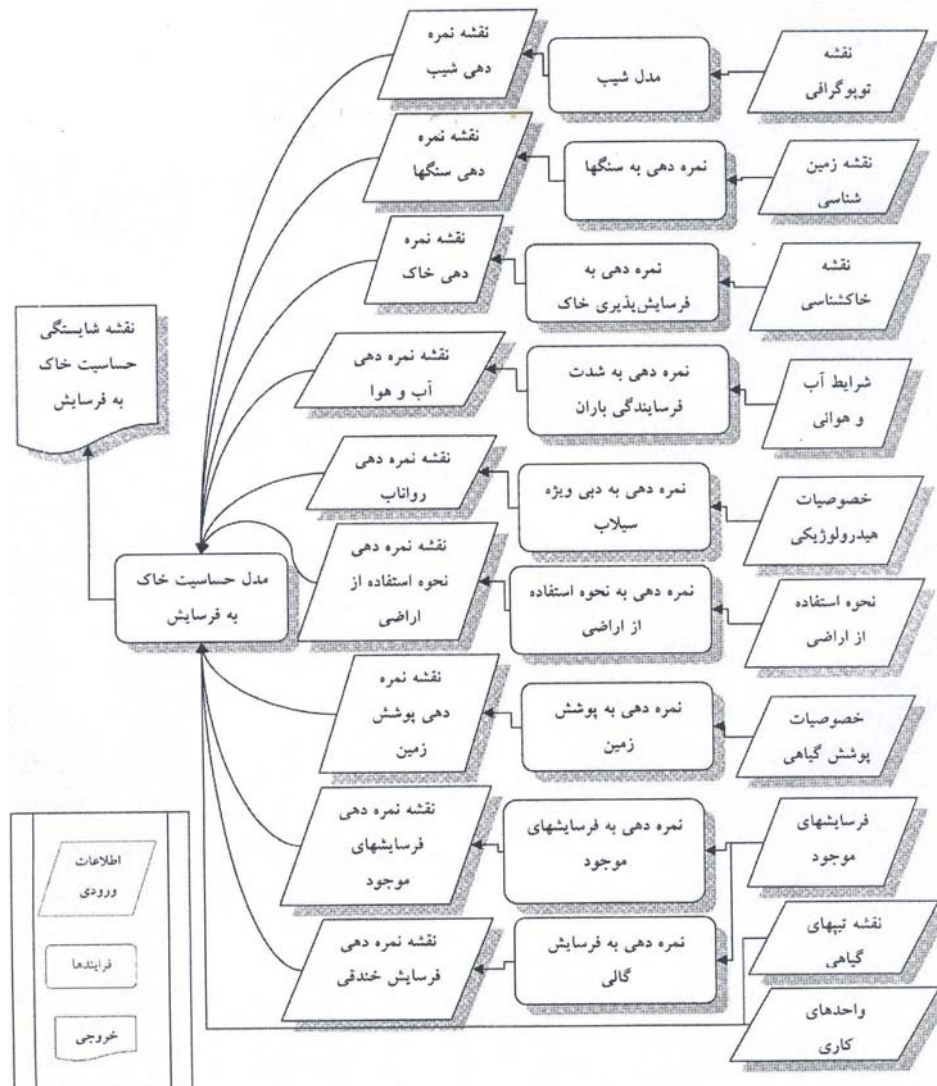 نقشه
توپوگرافی
مدل شیب
نقشه نمره
دهی شیب
نقشه زمین
شناسی
نمره دهی به سنگها
نقشه نمره
دهی سنگها
نقشه
خاکشناسی
نمره دهی به
فرسایش‌پذیری خاک
نقشه نمره
دهی خاک
شرایط آب
و هوائی
نمره دهی به شدت
فرسایندگی باران
نقشه نمره دهی
آب و هوا
خصوصیات
هیدرولوژیکی
نمره دهی به دبی ویژه
سیلاب
نقشه نمره دهی
رواناب
نحوه استفاده
از اراضی
نمره دهی به نحوه استفاده
از اراضی
نقشه نمره دهی
نحوه استفاده از
اراضی
خصوصیات
پوشش گیاهی
نمره دهی به پوشش
زمین
نقشه نمره
دهی پوشش
زمین
فرسایشهای
موجود
نمره دهی به فرسایشهای
موجود
نقشه نمره دهی
فرسایشهای
موجود
نمره دهی به فرسایش
گالی
نقشه نمره دهی
فرسایش خندقی
نقشه تیپهای
گیاهی
واحدهای
کاری
مدل حساسیت خاک
به فرسایش
نقشه شایستگی
حساسیت خاک
به فرسایش
اطلاعات
ورودی
فرایندها
خروجی